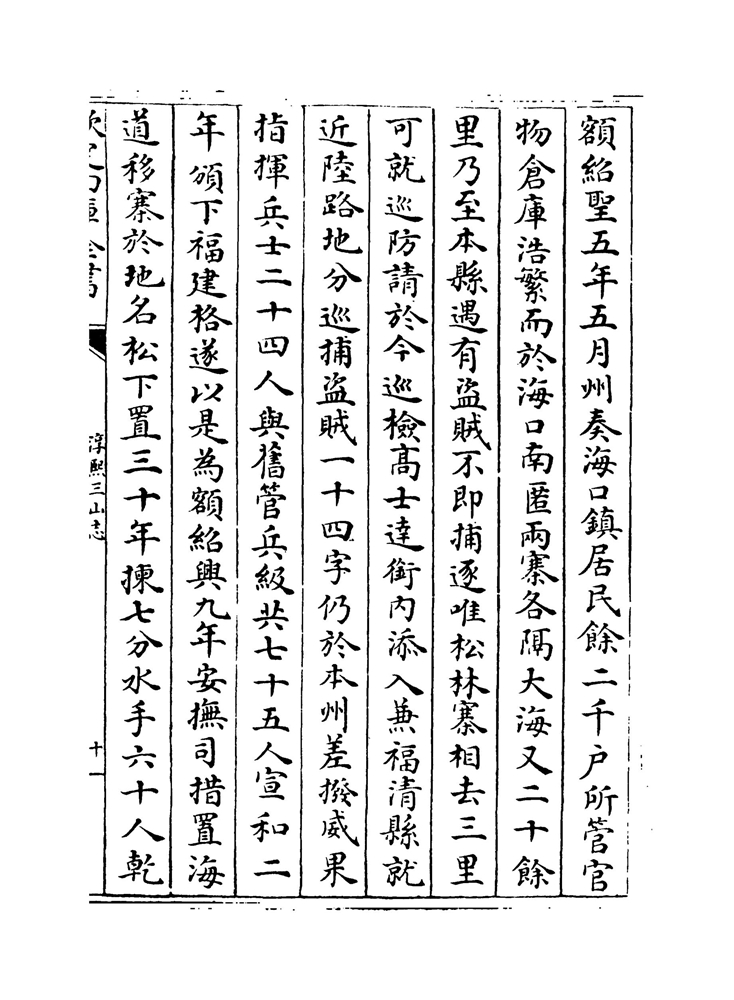 額紹聖五年五月州奏海口鎮居民餘二千户所管官
物倉庫浩繁而於海口南匿兩寨各隔大海又二十餘
里乃至本縣遇有盜賊不即捕逐唯松林寨相去三里
可就巡防請於今巡檢高士達銜内添入兼福清縣就
近陸路地分巡捕盜賊一十四字仍於本州差撥威果
指揮兵士二十四人與舊管兵級共七十五人宣和二
年頒下福建格遂以是為額紹興九年安撫司措置海
道移寨於地名松下置三十年揀七分水手六十人乾
欽定四庫全書
淳熙三山志
十一